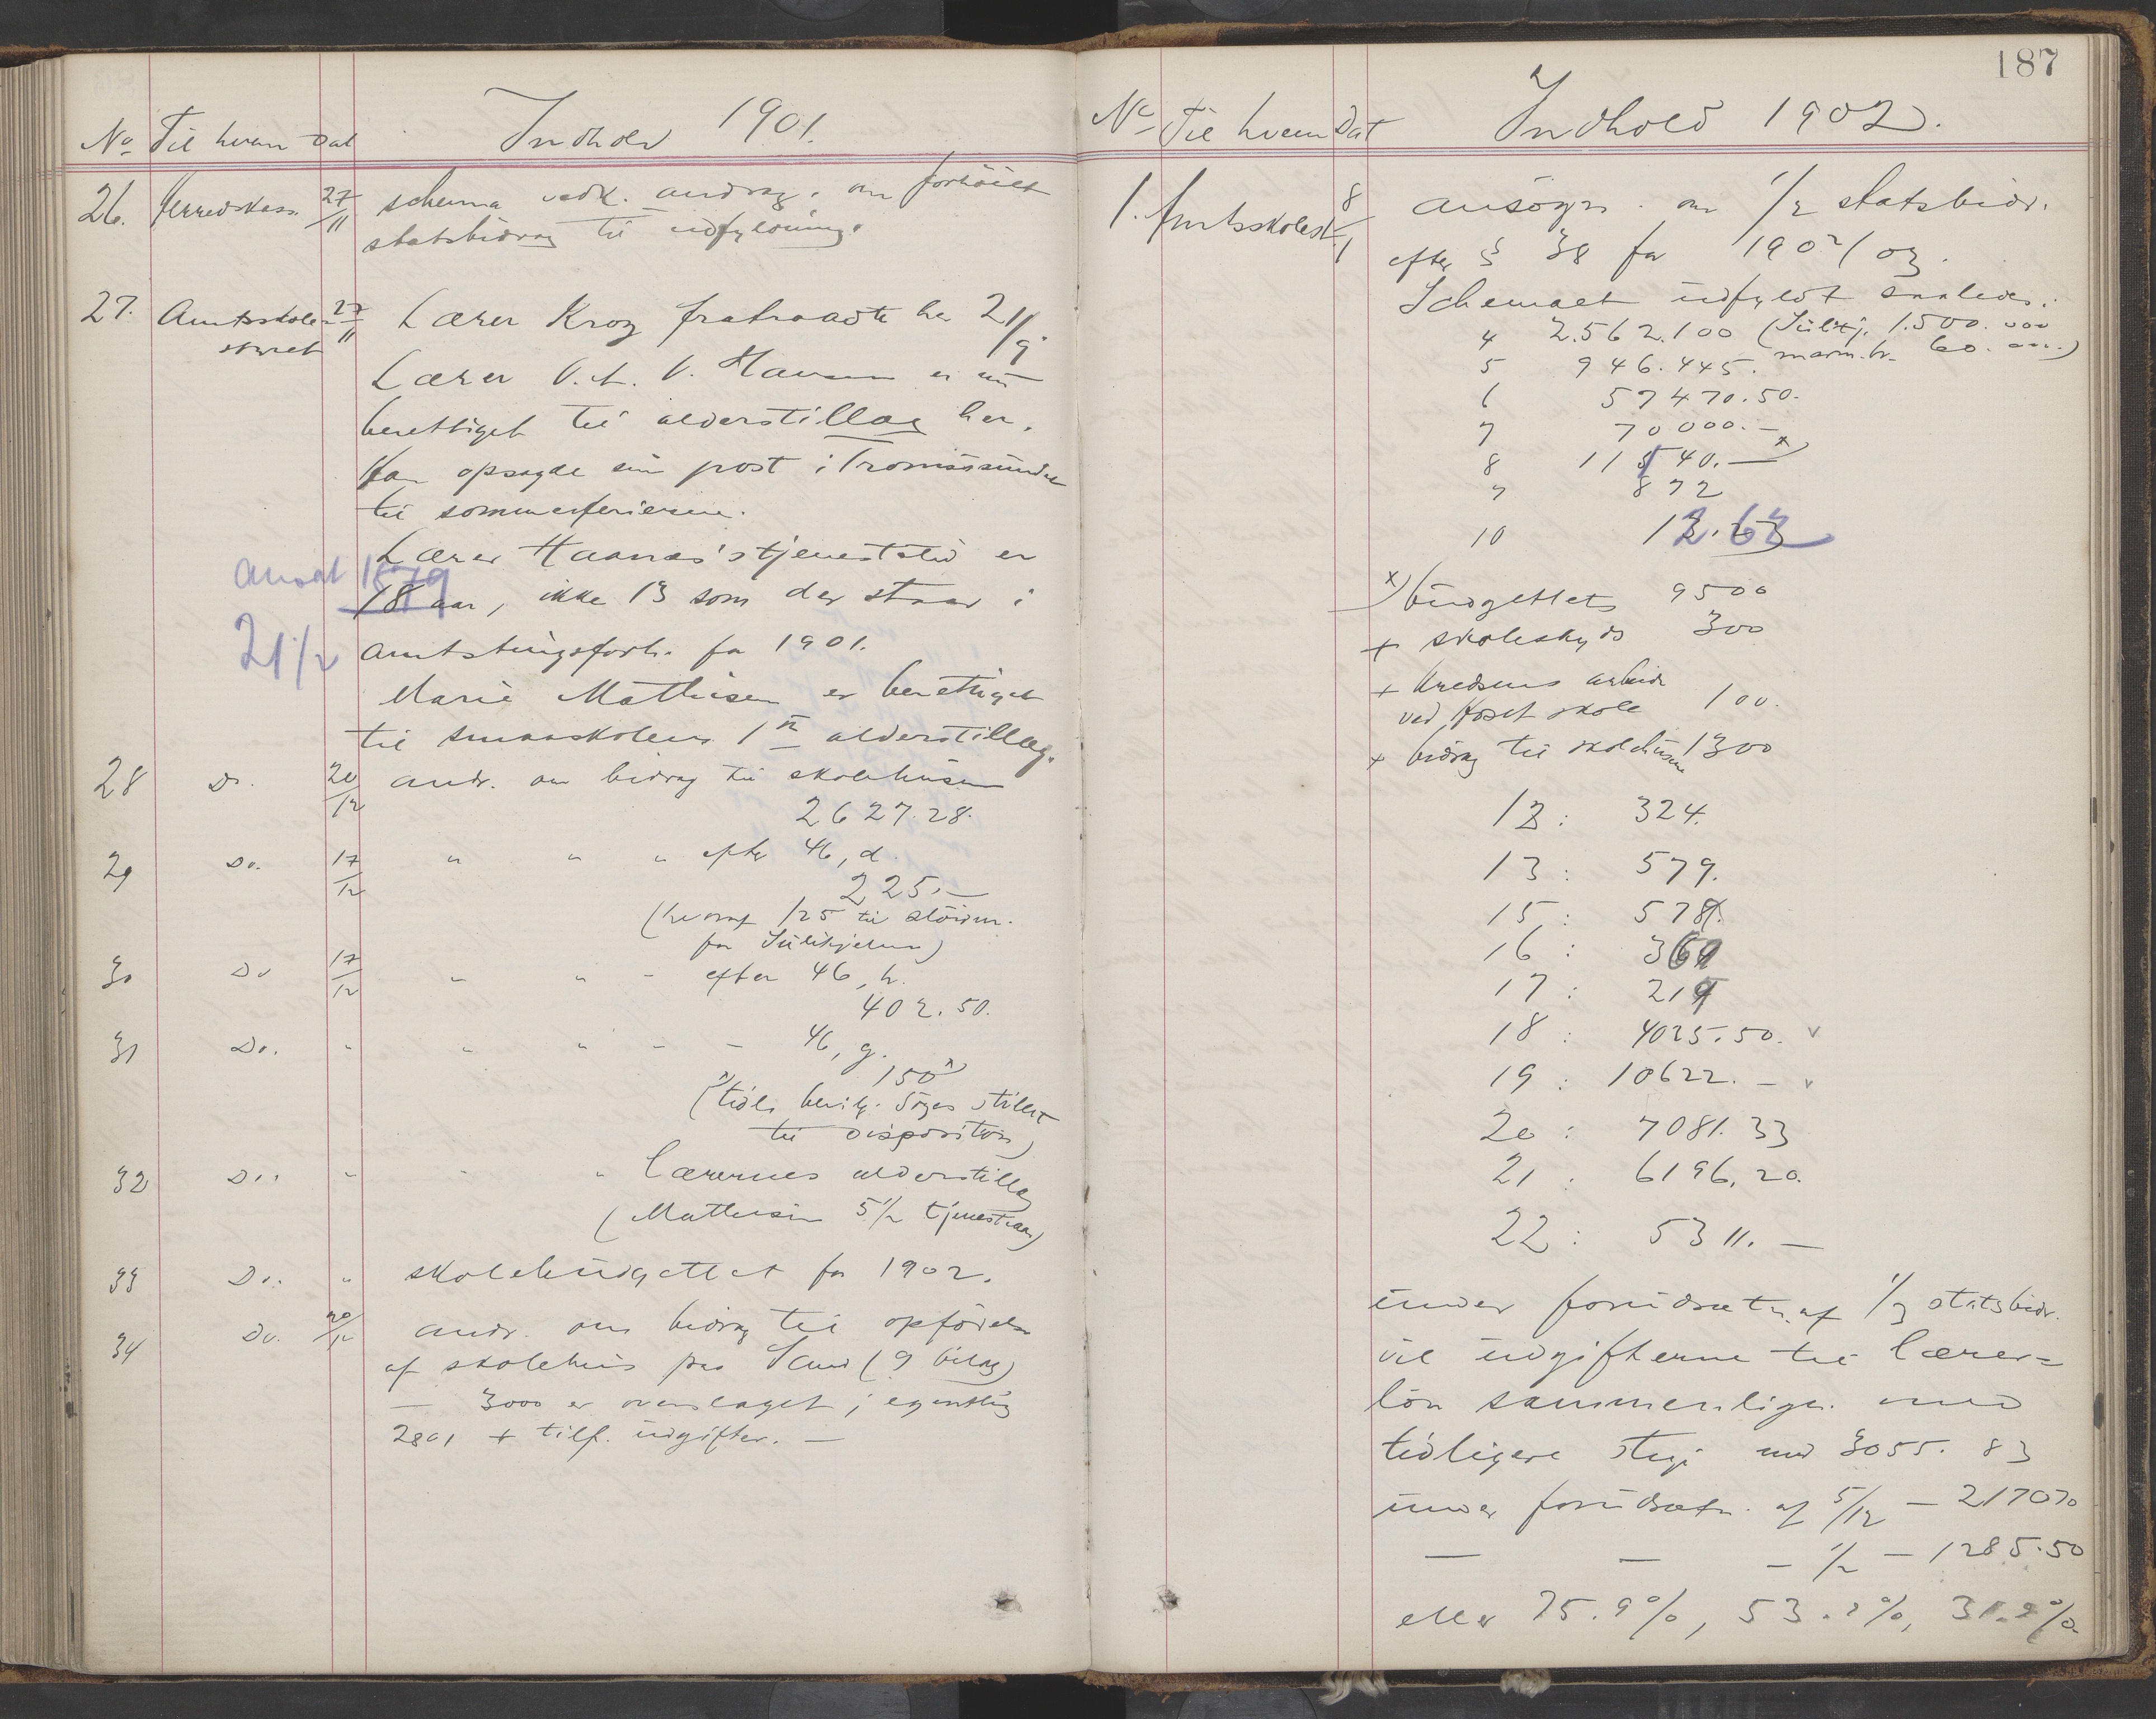 No Til hvem Dat Indhold 1901.
26. Herredskass. 27/11 schema vedk. andrag. om forhöiet
statsbidrag til udfyldning.
27. Amtsskole- 27/11 Lærer Krog fratraadte her 21/9.
styret
Lærer O. L. V. Hansen er nu
berettiget til alderstillæg her.
Han opsagde sin post i Tromsösundet
til sommerferierne.
Lærer Haanæs's tjenestetid er
ansat 1879
18 aar, ikke 13 som der staar i
21 1/2
amtstingsforh. for 1901.
Marie Mathisen er berettiget
til smaaskolens 1ste alderstillæg.
28 Do. 20/12 andr. om bidrag til skolehusene
2627.28.
29 Do. 17/12 " " " efter 46, d.
225.—
(hvoraf 125 til
for Julikjelen)
30 Do 17/12 " " " efter 46, h.
402.50.
31 Do. " " " " — 46, g.
150 x)
x) (tidl. bevilg. söges stillet
til disposition)
32 Do. " " " Lærernes alderstillæg
(Mathisen 5 1/2 tjenesteaar)
33 Do. " skolebudgettet for 1902.
34 Do. 20/12 andr. om bidrag til opförelse
af skolehus paa Sand (9 bilag)
— 3000 er overslaget; egentlig
2801 + tilf. udgifter. —
187
No Til hvem Dat Indhold 1902.
1. Amtsskolest. 8/1 ansögn. om 1/2 statsbidr.
efter § 38 for 1902/03.
Schemaet udfyldt saaledes:
4 2.562.100 (Sulitj. 1.500.000
5 946.445. marm.br. 60.000.)
6 57470.50.
7 70000.—
8 11540.— x)
9 872
10 12.63
x) budgettets 9500
+ skoleskyds 300
+ kredsens arbeide
ved Koset skole 100.
+ bidrag til skolehusene 1300
12: 324.
13: 579.
15: 578.
16: 369
17: 219
18: 4025.50. v
19: 10622.— v
20: 7081.33
21: 6196.20.
22: 5311.—
under forudsætn. af 1/3 statsbidr.
vil udgifterne til lærer=
lön sammenlign. med
tidligere stige med 3055.83
under forudsætn. af 5/12 — 2170.70
— — — 1/2 — 1285.50
eller 75.9%, 53.9%, 31.9%.